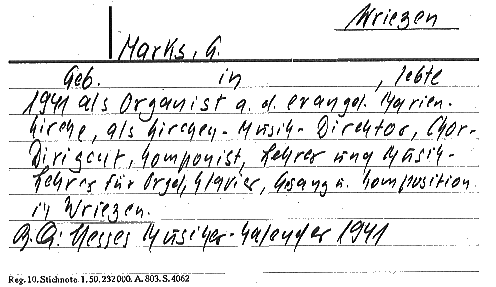 Wriezen
Marks, G.
Geb. in , lebte
1941 als Organist a. d. evangel. Marien-
kirche, als Kirchen-Musik-Direktor, Chor-
Dirigent, Komponist, Lehrer und Musik-
Lehrer für Orgel, Klavier, Gesang u. Komposition
in Wriezen.
Hesses Musiker-Kalender 1941
Reg. 10. Stichnote. 1. 50. 232000. A. 803. S. 4062